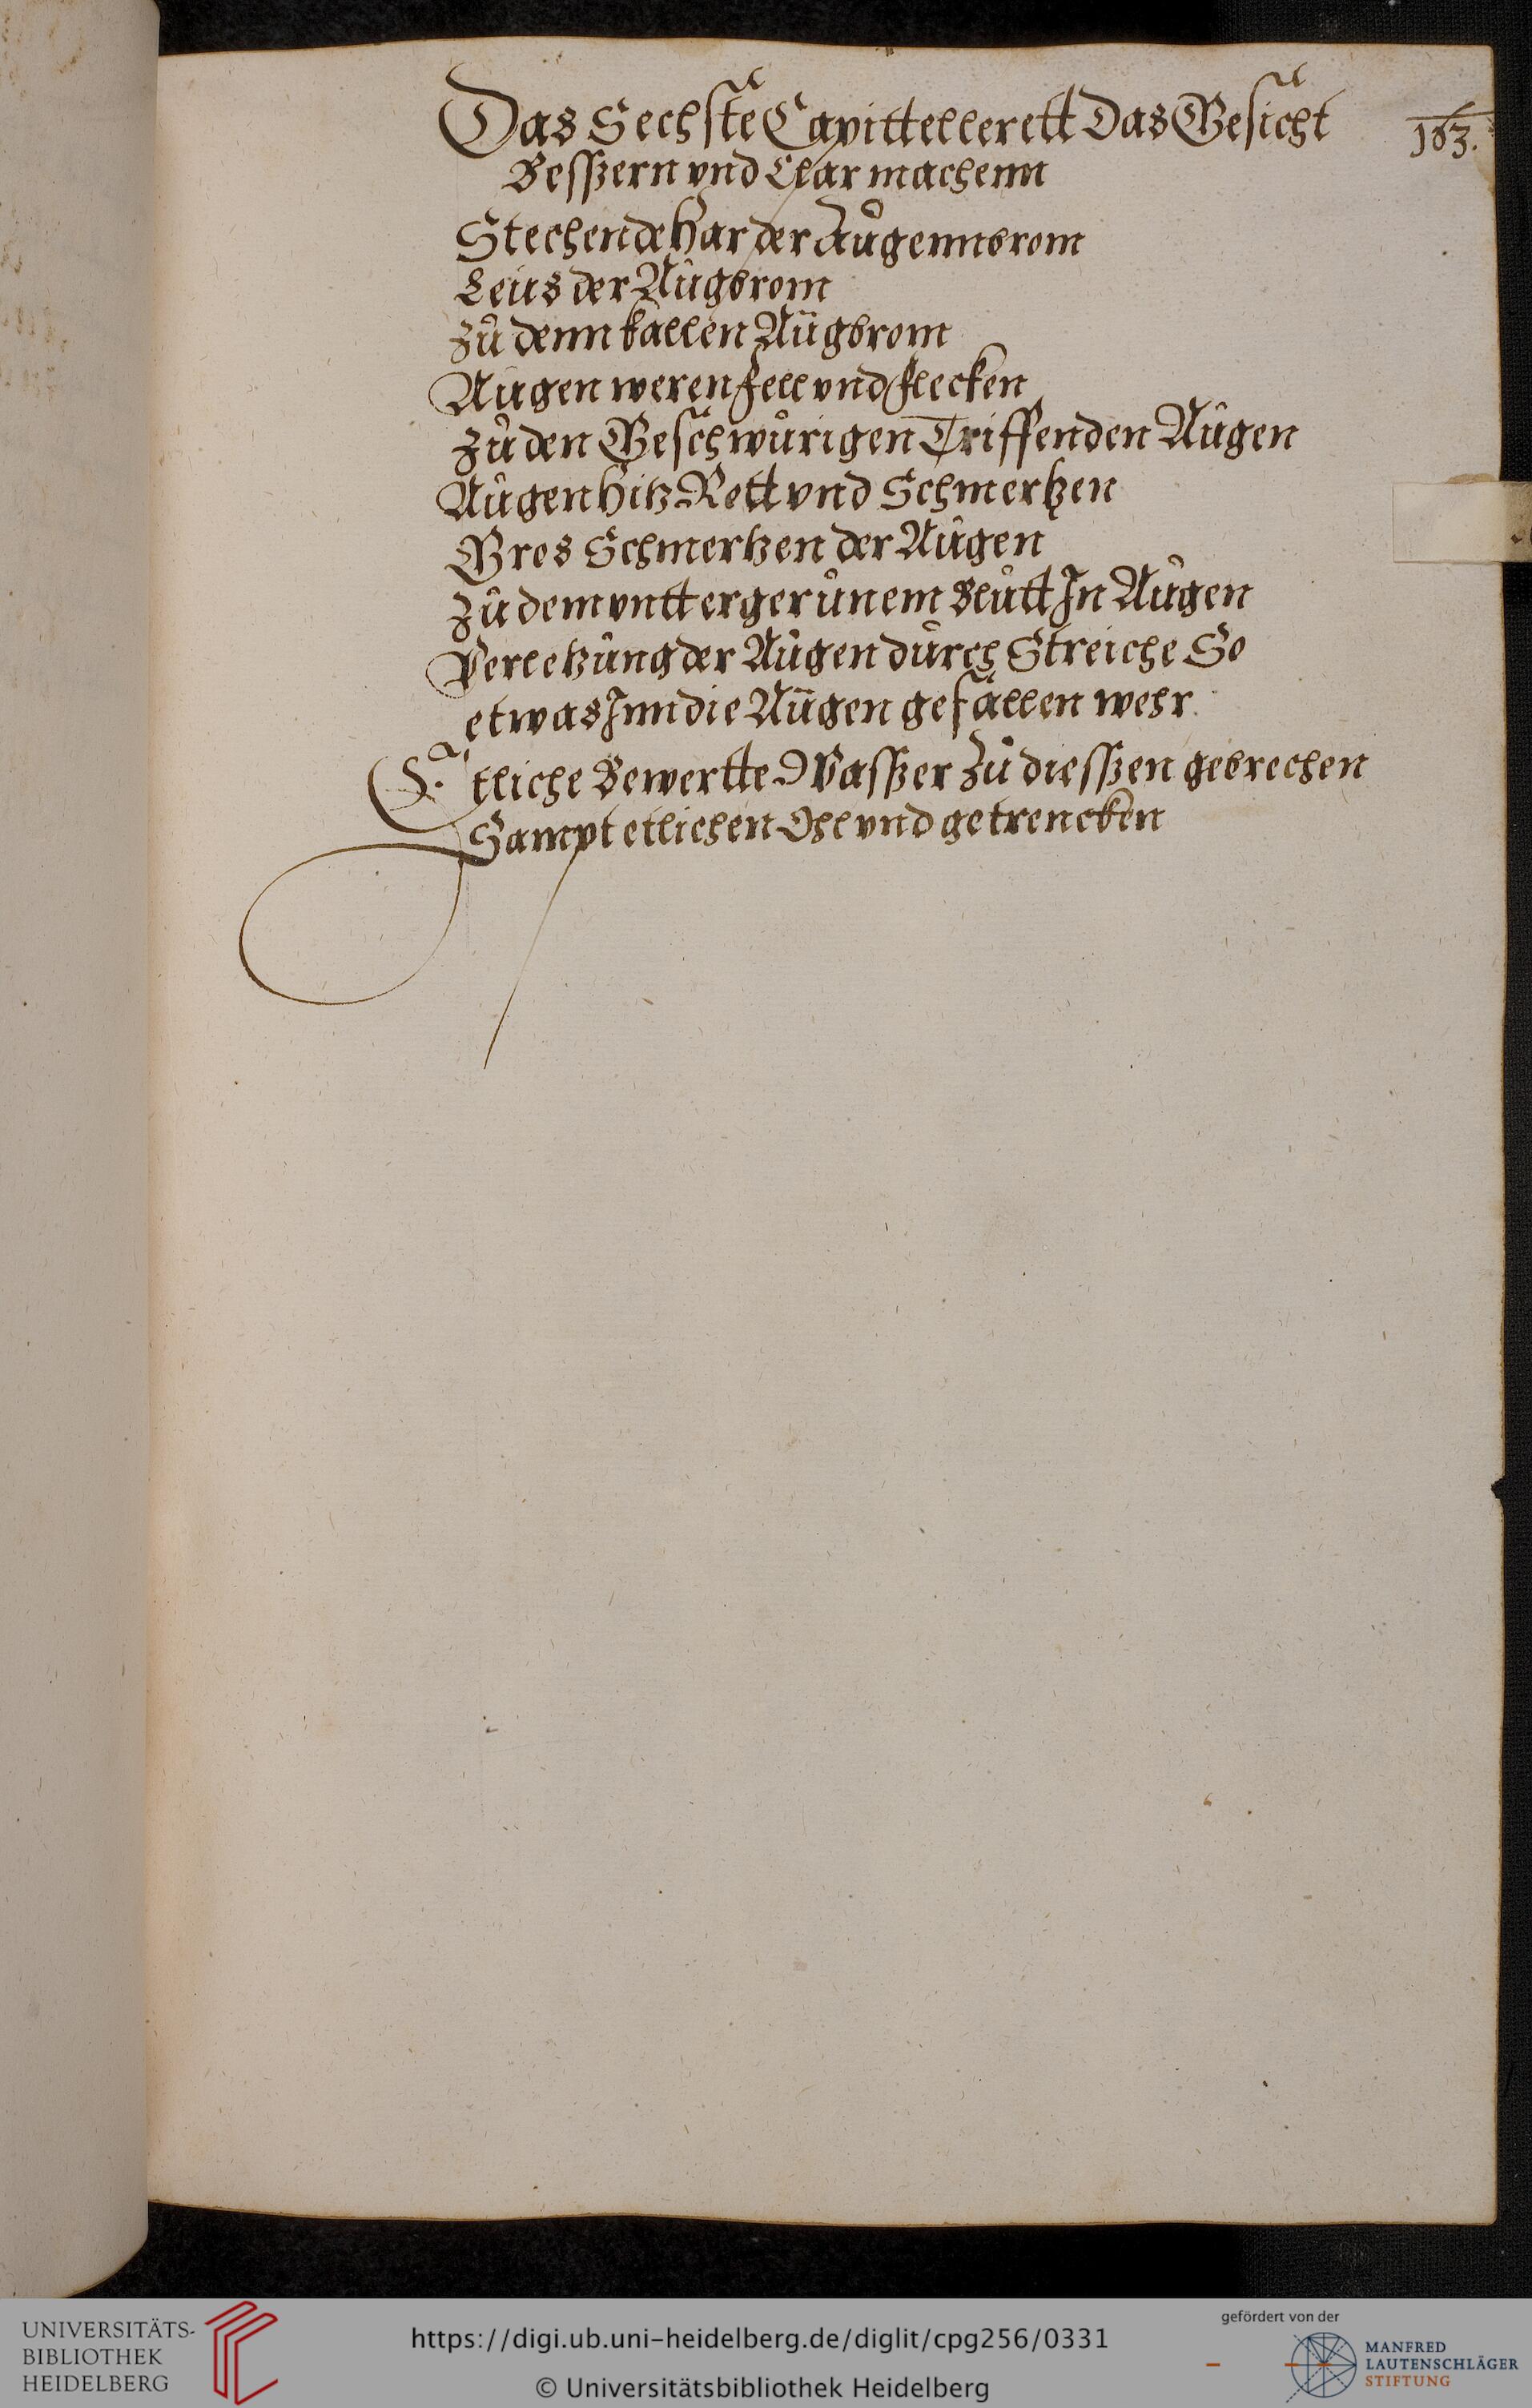 Das Sechste Capittell erett Das Gesicht
163.
Besszern vnd Clar machenn
Stechende Har der Augennbrom
Leus der Augbrom
Zu denn kallen Augbrom
Augen weren fell vnd flecken
Zu den Geschwurigen Trifffenden Augen
Augen hitz Rott vnd Schmertzen
Gros Schmertzen der Augen
Zu dem vntter gerunem Blutt In Augen
Verletzung der Augen durch Streiche So
etwas Inn die Augen gefallen wehr
Etliche Bewertte Wasszer Zu diesszen gebrechen
Sampt etlichen Ohl vnd getrencken
UNIVERSITÄTS-
BIBLIOTHEK
HEIDELBERG
https://digi.ub.uni-heidelberg.de/diglit/cpg256/0331
© Universitätsbibliothek Heidelberg
gefördert von der
MANFRED
LAUTENSCHLÄGER
STIFTUNG